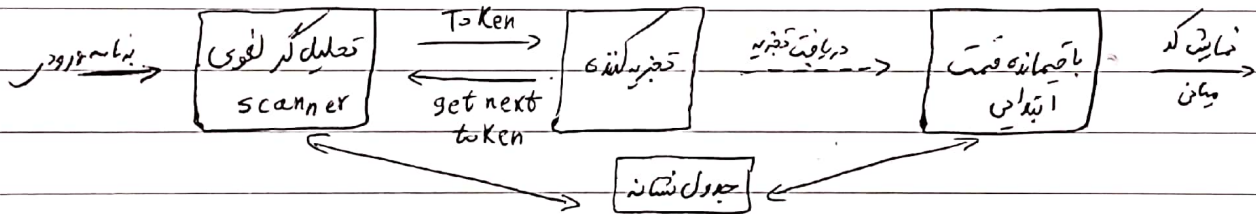 برنامه ورودی
تحلیل گر لغوی
scanner
Token
get next
token
تجزیه کننده
درخت تجزیه
باقیمانده قسمت
ابتدایی
نمایش کد
میانی
جدول نشانه